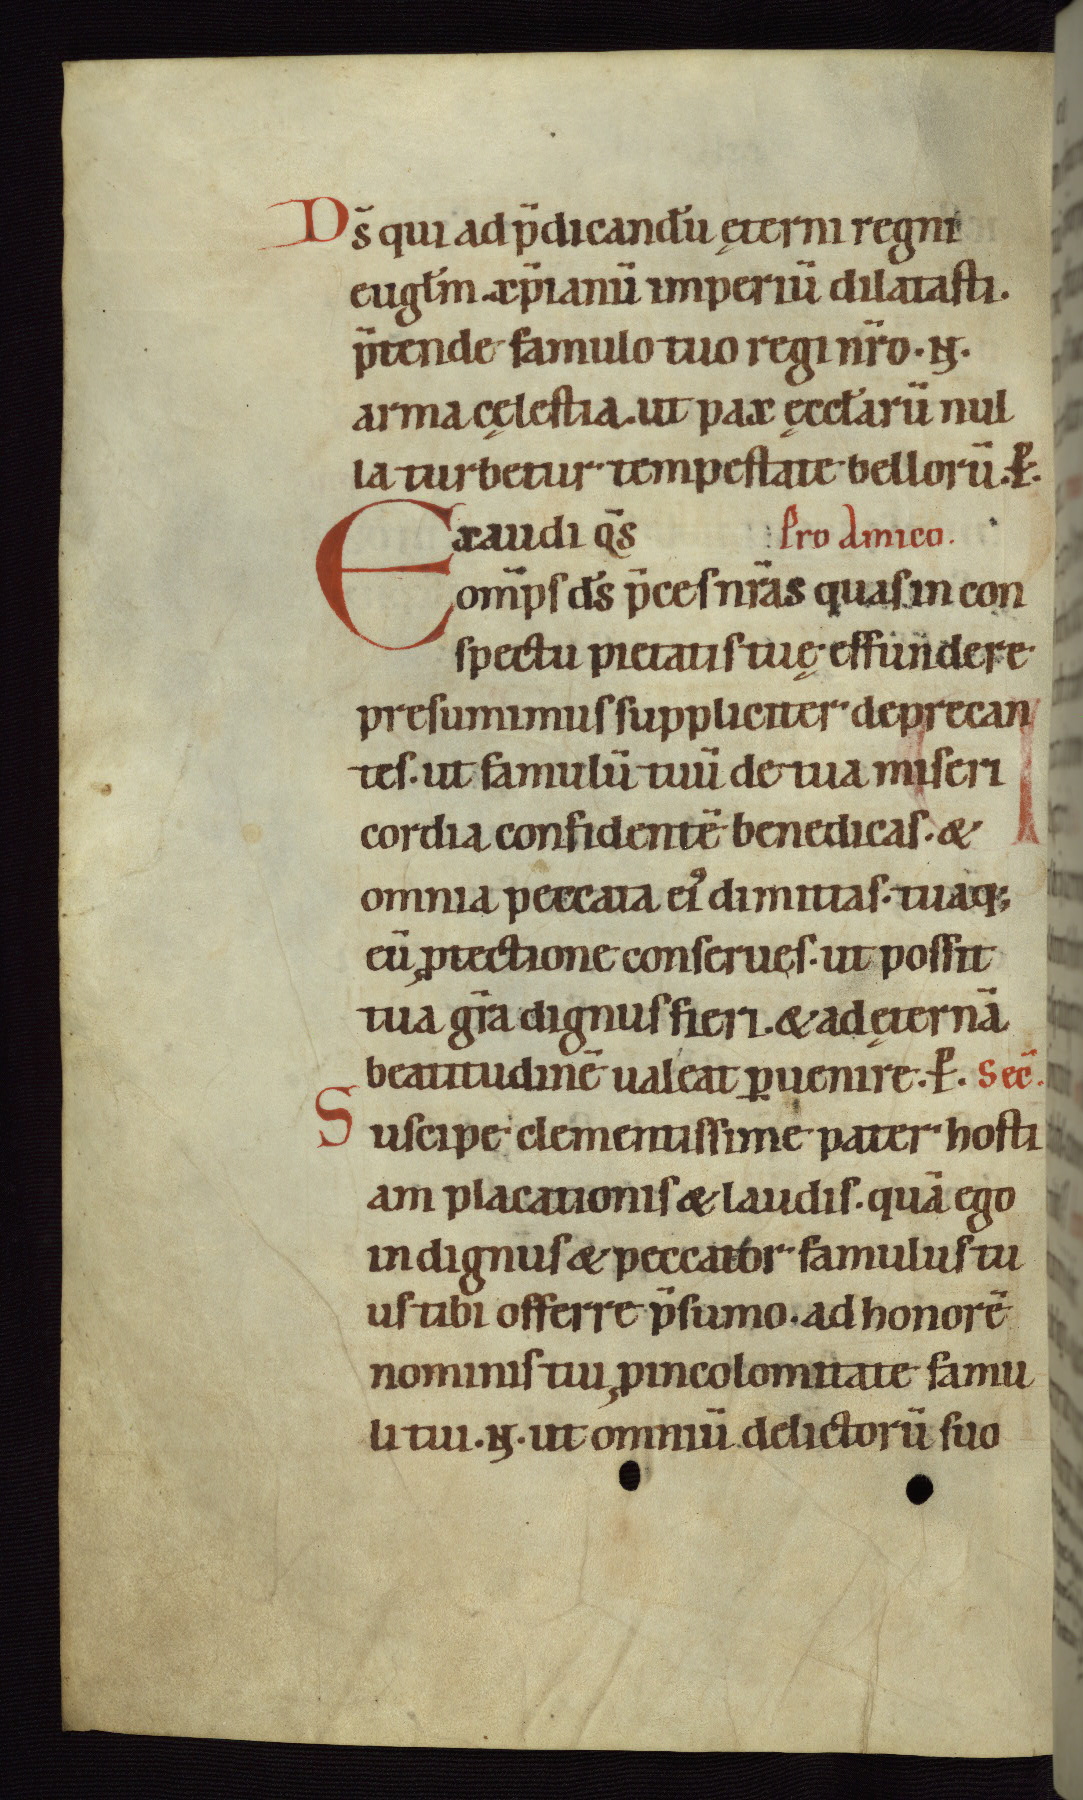 Ds̄ qui ad p̄dicandū ęterni regni
eugl̄m xp̄ianū imperiū dilatasti.
p̄tende famulo tuo regi nr̄o. N.
arma cęlestia. ut pax ęccl̄arū nul
la turbetur tempestate bellorū. P̱.
Exaudi qs̄ Pro Amico.
om̄ps ds̄ p̄ces nr̄as quas in con
spectu pietatis tuę effundere
presumimus suppliciter deprecan
tes. ut famulū tuū de tua miseri
cordia confidentē benedicas. &
omnia peccata ei᾽ dimittas. tuaq;
eū ꝓtectione conserues. ut possit
tua gr̄a dignus fieri. & ad ęternā
beatitudinē ualeat ꝑuenire. P̱. Sec̄.
Suscipe clementissime pater hosti
am placationis & laudis. quā ego
indignus & peccator famulus tu
us tibi offerre p̄sumo. ad honorē
nominis tui, ꝓ incolomitate famu
li tui. N. ut omniū delictorū suo